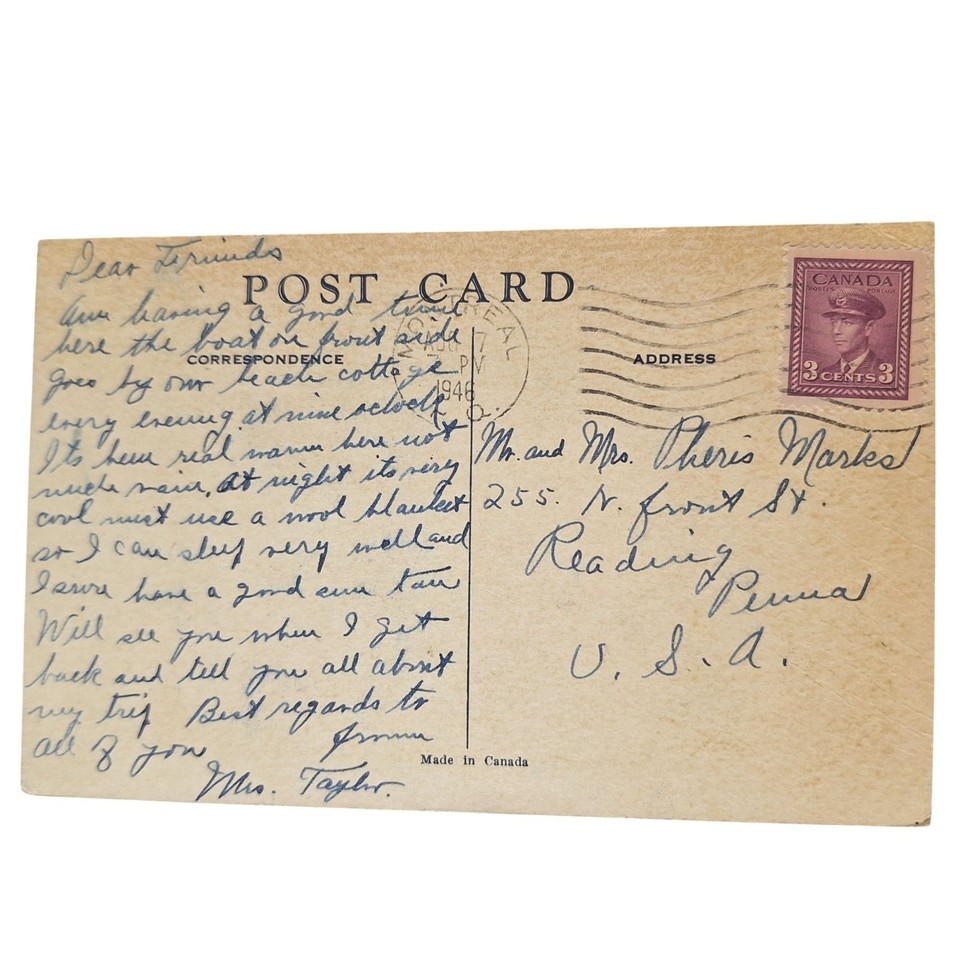 Dear Friends
POST CARD
Am having a good time
here the boat on front side
CORRESPONDENCE
goes by our beach cottage
every evening at nine oclock
Its been real warm here not
much rain. At night its very
cool must use a wool blanket
so I can sleep very well and
I sure have a good sun tan
Will see you when I get
back and tell you all about
my trip Best regards to
all of you from
Mrs. Taylor.
MONTREAL
7
PM
1946
P.Q.
ADDRESS
CANADA
POSTES POSTAGE
3 CENTS 3
Mr. and Mrs. Pheris Marks
255. N. front St.
Reading
Penna
U. S. A.
Made in Canada